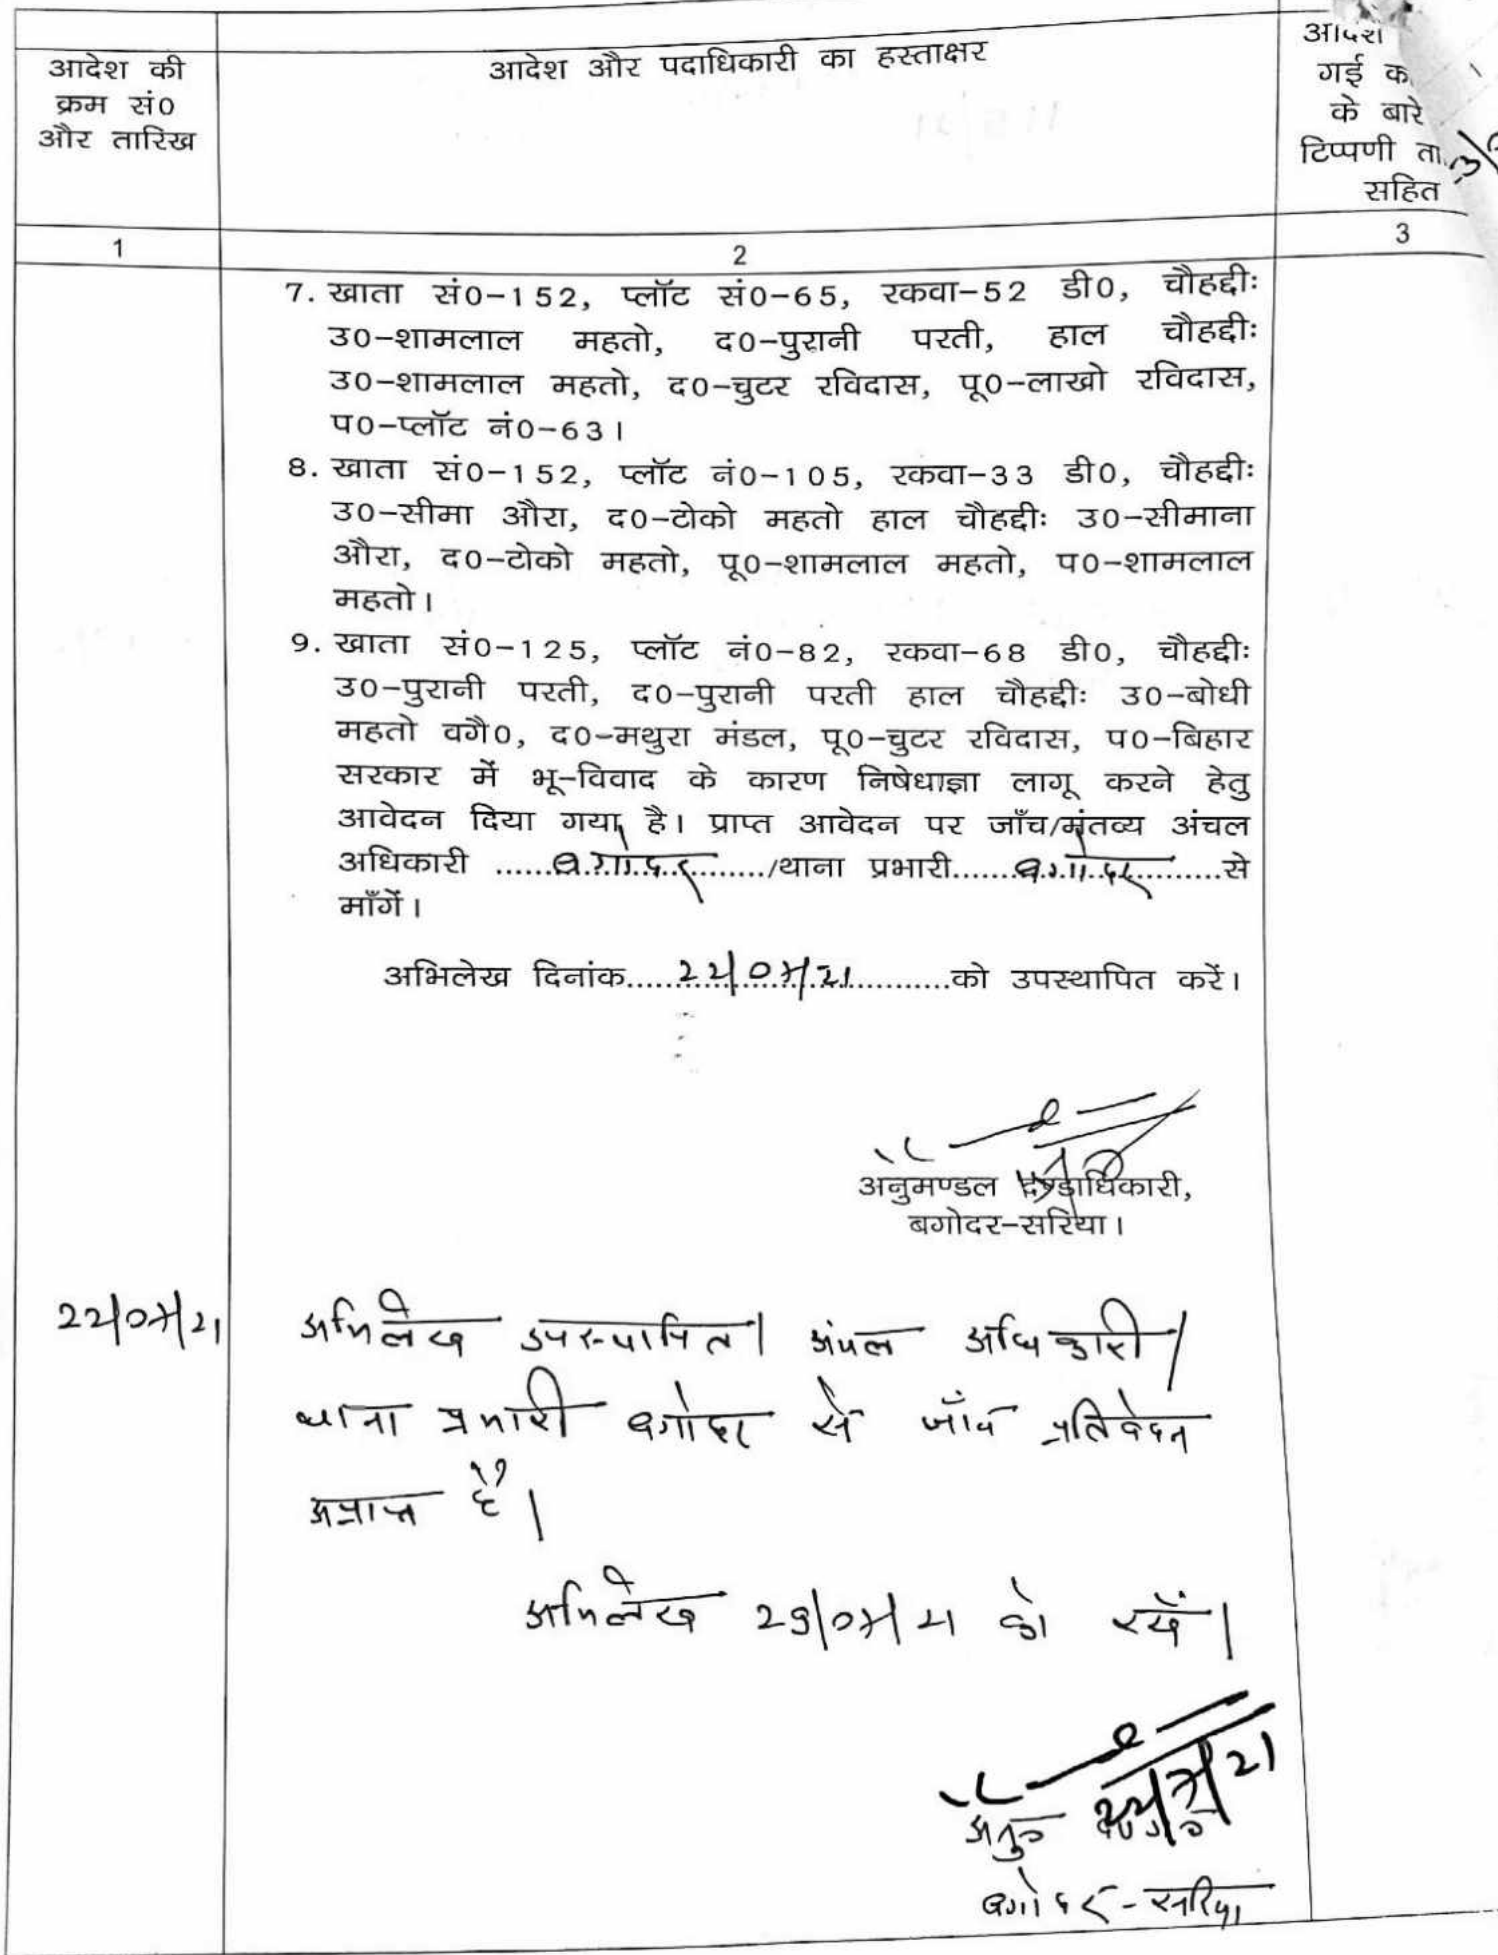 आदेश की
क्रम सं0
और तारिख
आदेश और पदाधिकारी का हस्ताक्षर
आदेश
गई
के बारे
टिप्पणी
सहित
1
2
3
7. खाता सं0-152, प्लॉट सं0-65, रकवा-52 डी0, चौहद्दीः
उ0-शामलाल महतो, द0-पुरानी परती, हाल चौहद्दीः
उ0-शामलाल महतो, द0-चुटर रविदास, पू0-लाखो रविदास,
प0-प्लॉट नं0-63।
8. खाता सं0-152, प्लॉट नं0-105, रकवा-33 डी0, चौहद्दीः
उ0-सीमा औरा, द0-टोको महतो हाल चौहद्दीः उ0-सीमाना
औरा, द0-टोको महतो, पू0-शामलाल महतो, प0-शामलाल
महतो।
9. खाता सं0-125, प्लॉट नं0-82, रकवा-68 डी0, चौहद्दीः
उ0-पुरानी परती, द0-पुरानी परती हाल चौहद्दीः उ0-बोधी
महतो वगै0, द0-मथुरा मंडल, पू0-चुटर रविदास, प0-बिहार
सरकार में भू-विवाद के कारण निषेधाज्ञा लागू करने हेतु
आवेदन दिया गया है। प्राप्त आवेदन पर जाँच/मंतव्य अंचल
अधिकारी ......बगोदर....../थाना प्रभारी......बगोदर......से
माँगें।
अभिलेख दिनांक......22/07/21......को उपस्थापित करें।
अनुमण्डल दण्डाधिकारी,
बगोदर-सरिया।
22/07/21
अभिलेख उपस्थापित। अंचल अधिकारी/
थाना प्रभारी बगोदर से जाँच प्रतिवेदन
अप्राप्त है।
अभिलेख 29/07/21 को रखें।
22/7/21
अनु0
बगोदर-सरिया